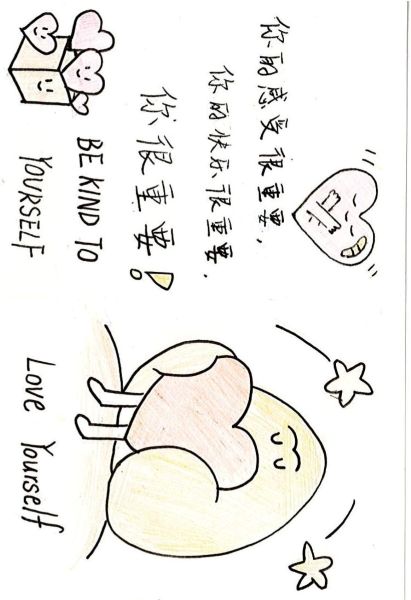 你的感受很重要，
你的快乐很重要，
你很重要！
BE KIND TO
YOURSELF
Love Yourself